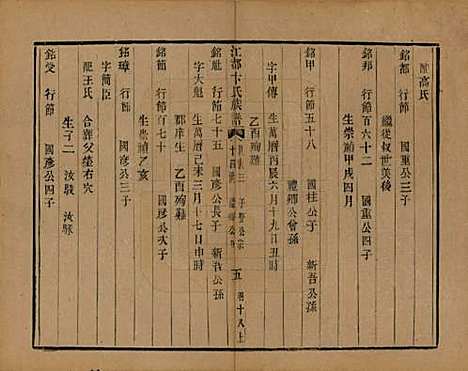 配高氏
銘都 行節 國重公三子
繼從叔世美後
銘邦 行節百六十二 國重公四子
生崇禎甲戌四月
銘甲 行節五十八 國柱公子 新吾公孫
禮卿公曾孫
字甲傳 生萬曆丙辰六月十九日丑時
乙酉殉難
江都卞氏族譜
五
銘魁 行節七十五 國彥公長子 新吾公孫
字大魁 生萬曆己未三月十七日申時
郡庠生 乙酉殉難
銘節 行節百七十 國彥公次子
生崇禎乙亥
銘璋 行節 國彥公三子
字簡臣
配王氏 合葬父塋右穴
生子二 汝駿 汝脉
銘受 行節 國彥公四子